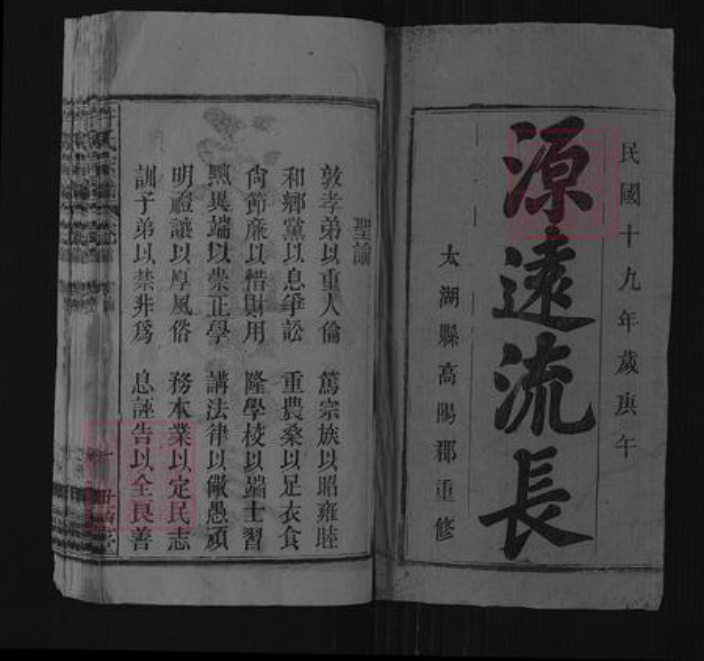 民國十九年歲庚午
源遠流長
太湖縣高陽郡重修
聖諭
敦孝弟以重人倫 篤宗族以昭雍睦
和鄉黨以息爭訟 重農桑以足衣食
尙節廉以惜財用 隆學校以端士習
黜異端以崇正學 講法律以儆愚頑
明禮讓以厚風俗 務本業以定民志
訓子弟以禁非爲 息誣告以全良善